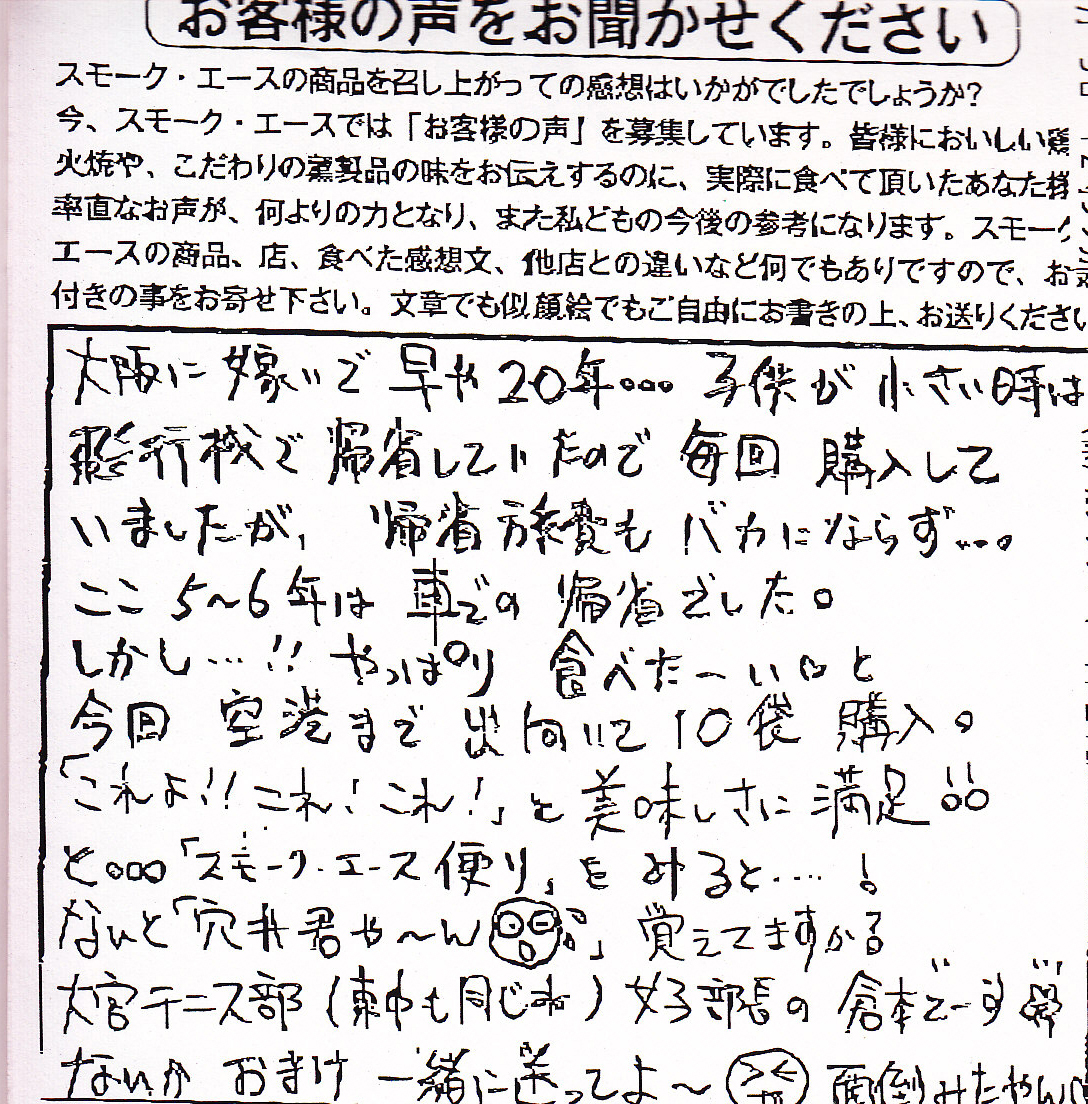 お客様の声をお聞かせください
スモーク・エースの商品を召し上がっての感想はいかがでしたでしょうか?
今、スモーク・エースでは「お客様の声」を募集しています。皆様においしい鶏
火焼や、こだわりの薫製品の味をお伝えするのに、実際に食べて頂いたあなた様
率直なお声が、何よりの力となり、また私どもの今後の参考になります。スモーク
エースの商品、店、食べた感想文、他店との違いなど何でもありですので、お気
付きの事をお寄せ下さい。文章でも似顔絵でもご自由にお書きの上、お送りください
大阪に嫁いで早や20年... 子供が小さい時は
飛行機で帰省していたので毎回購入して
いましたが、帰省旅費もバカにならず...。
ここ5~6年は車での帰省でした。
しかし...!!やっぱり食べた~い♡と
今回空港まで出向いて10袋購入。
「これよ!!これ!これ!」と美味しさに満足!!
と...「スモーク・エース便り」をみると....!
なんと「穴井君や~ん」覚えてますかる
大宮テニス部(東中も同じね)女子部長の倉本で~す
ないかおまけ一緒に送ってよ~面倒みたやん